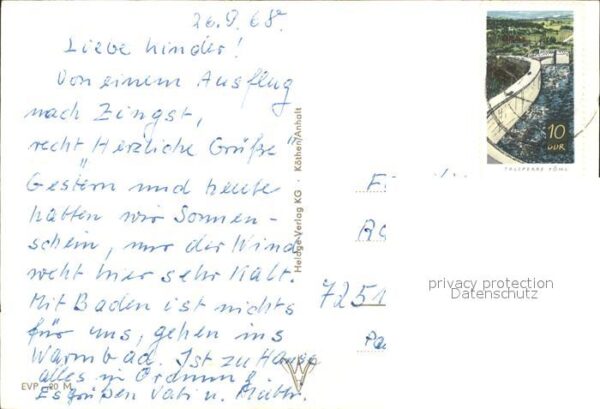 26.9.68.
Liebe Kinder!
Von einem Ausflug
nach Zingst,
recht Herzliche Grüße"
Gestern und heute
hatten wir Sonnen-
schein, nur der Wind
weht hier sehr kalt.
Mit Baden ist nichts
für uns, gehen ins
Warmbad. Ist zu Hause
alles in Ordnung
Es grüßen Vati u. Mutti.
EVP -20 M
Heldge-Verlag KG Köthen/Anhalt
10
DDR
TALSPERRE PÖHL
7251
privacy protection
Datenschutz